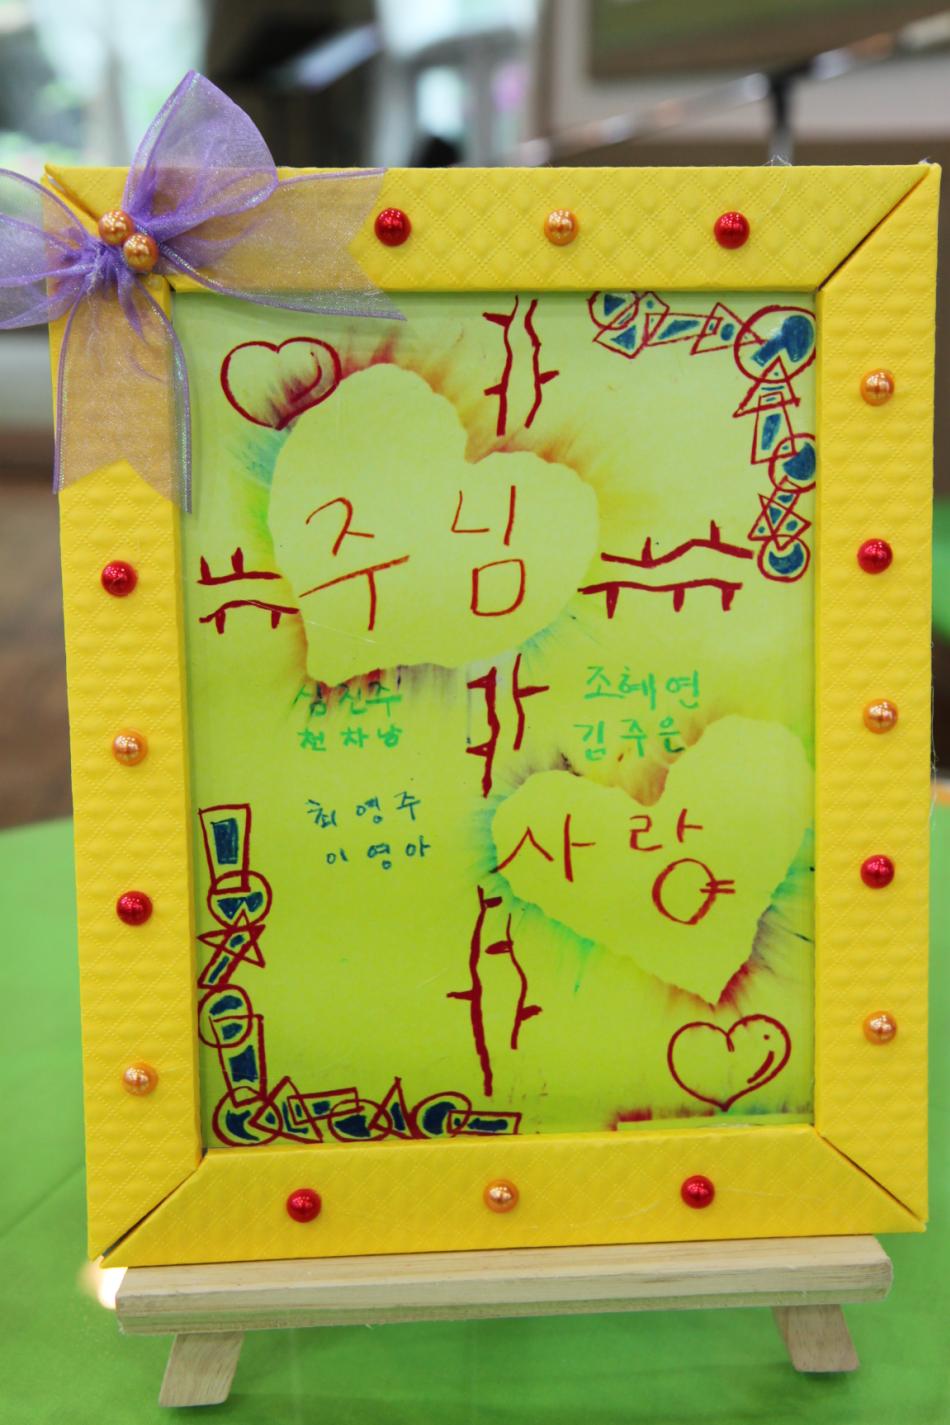 주님
심진주
천차남
조혜연
김주은
최영주
이영아
사랑